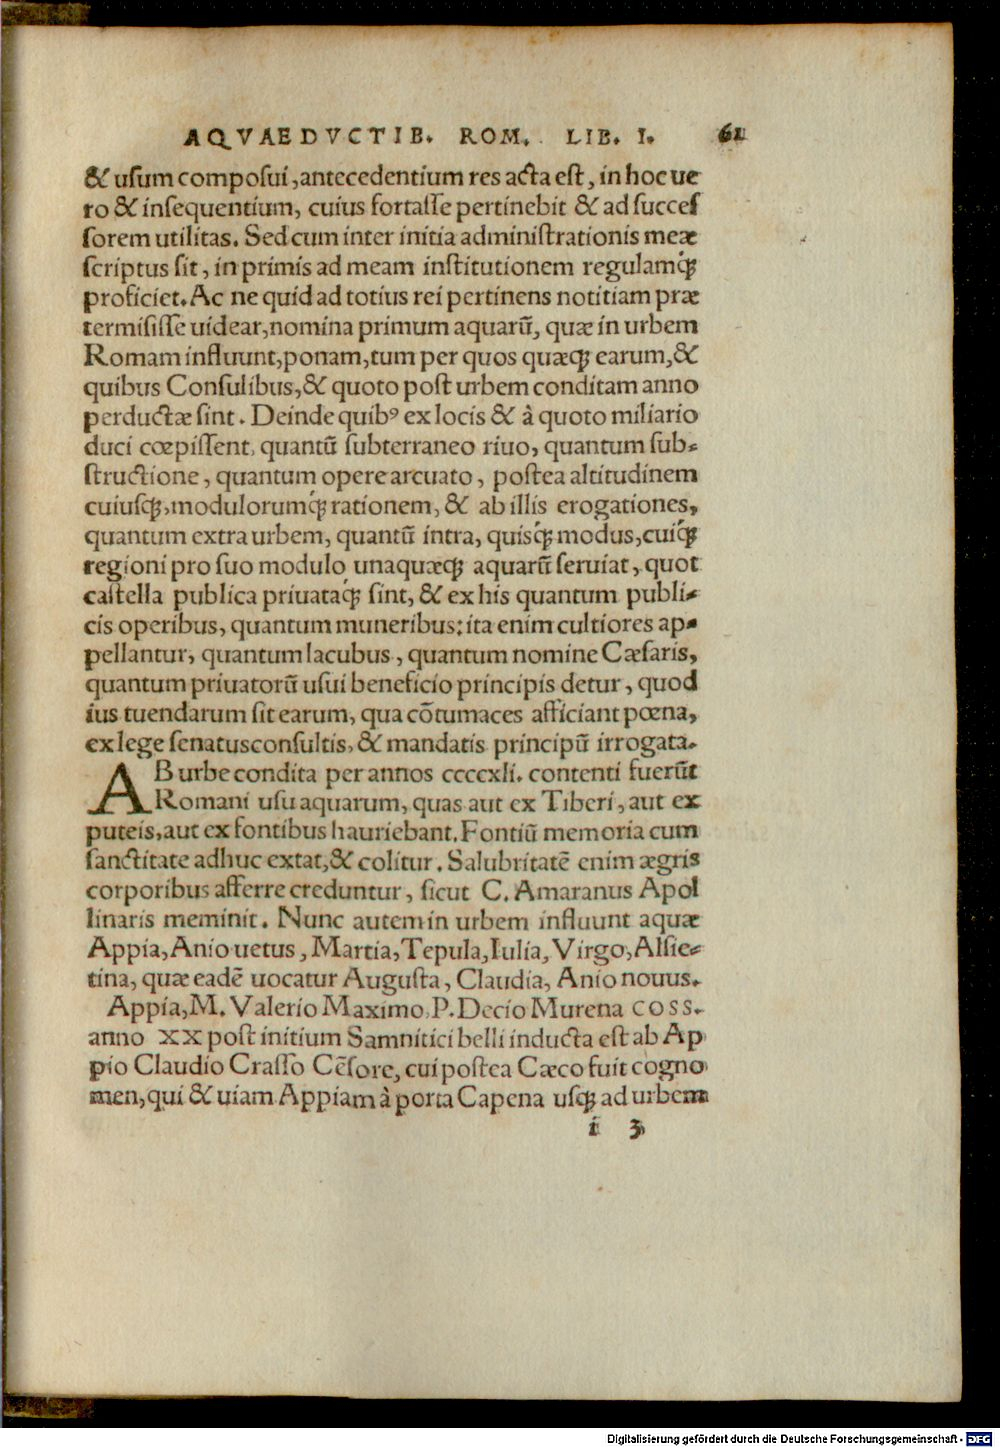 AQVAEDVCTIB. ROM. LIB. I. 61
& uſum compoſui, antecedentium res acta eſt, in hoc ue
ro & inſequentium, cuius fortaſſe pertinebit & ad succeſ
ſorem utilitas. Sed cum inter initia adminiſtrationis meæ
ſcriptus ſit, in primis ad meam inſtitutionem regulamq́ꝫ
proficiet. Ac ne quid ad totius rei pertinens notitiam præ
termiſiſſe uidear, nomina primum aquarū, quæ in urbem
Romam influunt, ponam, tum per quos quæqꝫ earum, &
quibus Conſulibus, & quoto poſt urbem conditam anno
perductæ ſint. Deinde quibꝰ ex locis & à quoto miliario
duci cœpiſſent, quantū ſubterraneo riuo, quantum ſub-
ſtructione, quantum opere arcuato, poſtea altitudinem
cuiuſqꝫ, modulorumq́ꝫ rationem, & ab illis erogationes,
quantum extra urbem, quantū intra, quisq́ꝫ modus, cuiq́ꝫ
regioni pro ſuo modulo unaquæqꝫ aquarū ſeruiat, quot
caſtella publica priuataq́ꝫ ſint, & ex his quantum publi-
cis operibus, quantum muneribus: ita enim cultiores ap-
pellantur, quantum lacubus, quantum nomine Cæſaris,
quantum priuatorū uſui beneficio principis detur, quod
ius tuendarum ſit earum, qua cōtumaces afficiant pœna,
ex lege ſenatusconſultis, & mandatis principū irrogata.
AB urbe condita per annos ccccxli. contenti fuerūt
Romani uſu aquarum, quas aut ex Tiberi, aut ex
puteis, aut ex fontibus hauriebant. Fontiū memoria cum
ſanctitate adhuc extat, & colitur. Salubritatē enim ægris
corporibus afferre creduntur, ſicut C. Amaranus Apol
linaris meminit. Nunc autem in urbem influunt aquæ
Appia, Anio uetus, Martia, Tepula, Iulia, Virgo, Alſie-
tina, quæ eadē uocatur Auguſta, Claudia, Anio nouus.
Appia, M. Valerio Maximo, P. Decio Murena COSS.
anno XX poſt initium Samnitici belli inducta eſt ab Ap
pio Claudio Craſſo Cēſore, cui poſtea Cæco fuit cogno
men, qui & uiam Appiam à porta Capena uſqꝫ ad urbem
i 3
Digitalisierung gefördert durch die Deutsche Forschungsgemeinschaft - DFG